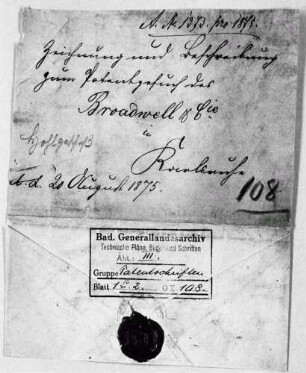 A. N. 1373. pro 1875.
Zeichnung und Beschreibung
zum Patentgesuch des
Broadwell & Cie
in
Karlsruhe
d. d. 20 August 1875.
108
Bad. Generallandesarchiv
Technische Pläne, und Schriften
Abt.: III.
Gruppe Patentschriften
Blatt 2 108.